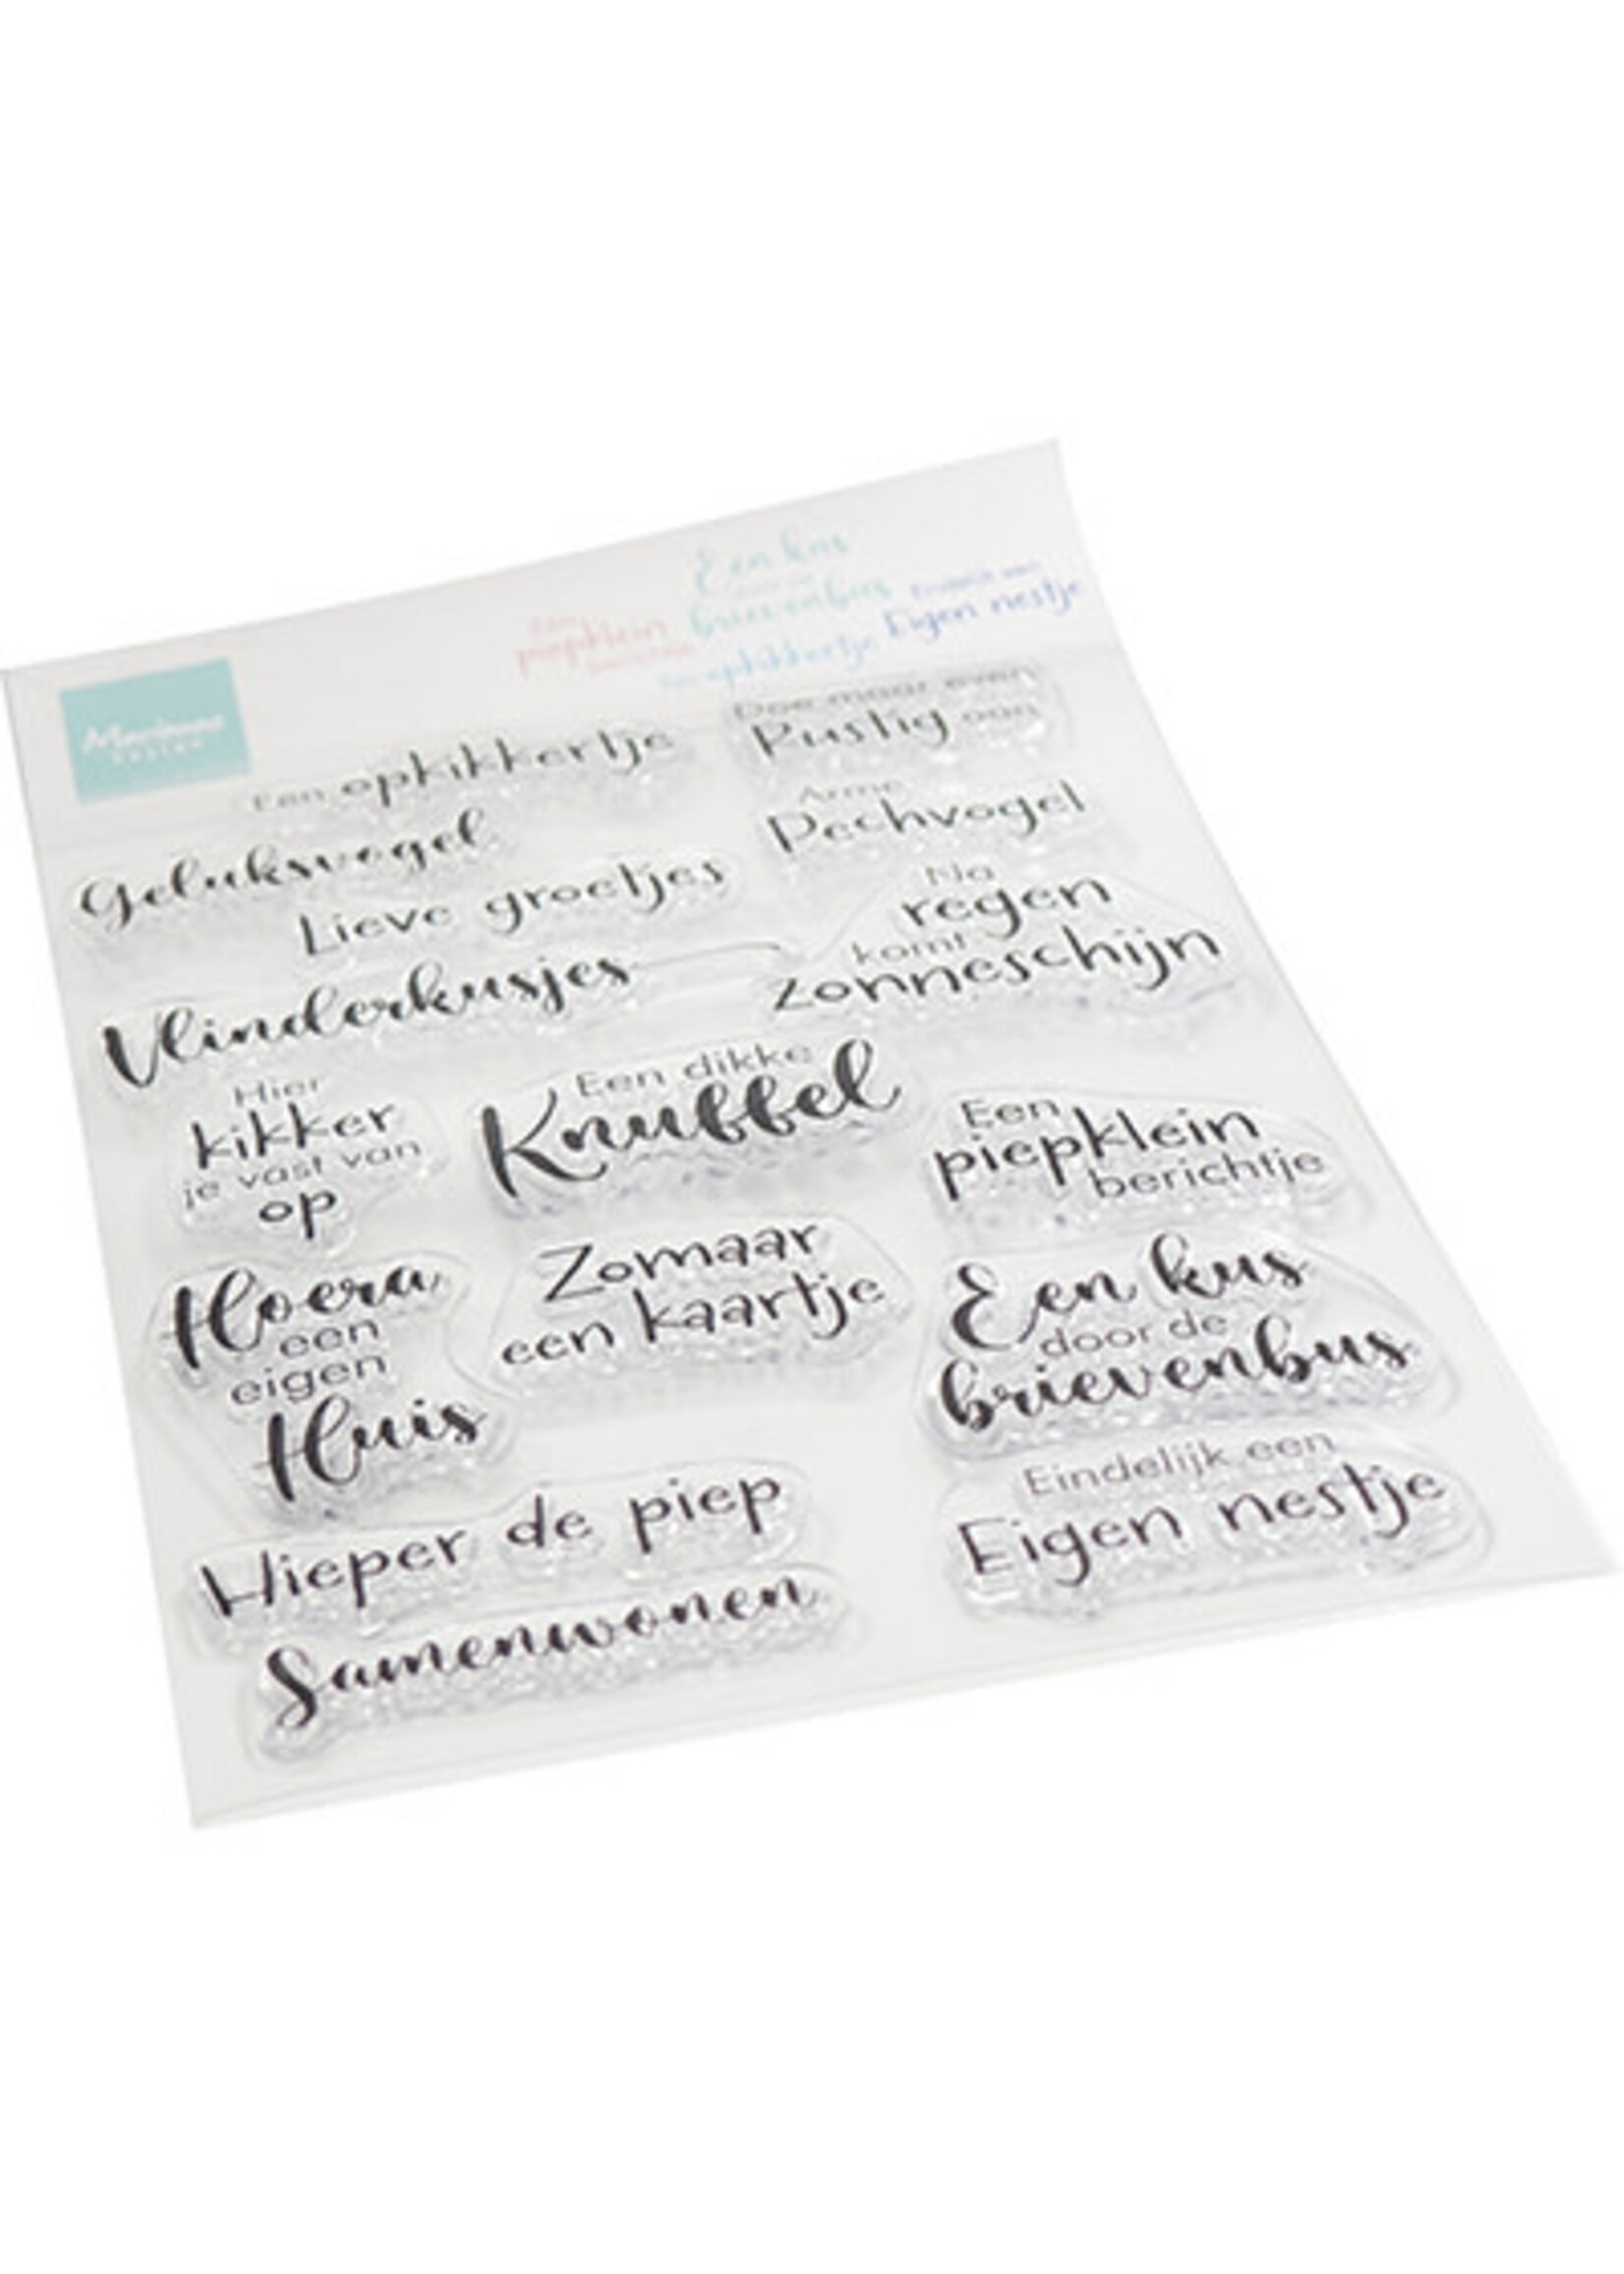 Een kus
brievenbus
Een
piepklein
berichtje
Eindelijk een
Eigen nestje
Een opkikkertje
Marianne
DESIGN
Een opkikkertje
Doe maar even
Rustig aan
Geluksvogel
Arme
Pechvogel
Lieve groetjes
Na
regen
komt
zonneschijn
Vlinderkusjes
Hier
kikker
je vast van
op
Een dikke
Knuffel
Een
piepklein
berichtje
Hoera
een
eigen
Huis
Zomaar
een kaartje
Een kus
door de
brievenbus
Hieper de piep
Samenwonen
Eindelijk een
Eigen nestje